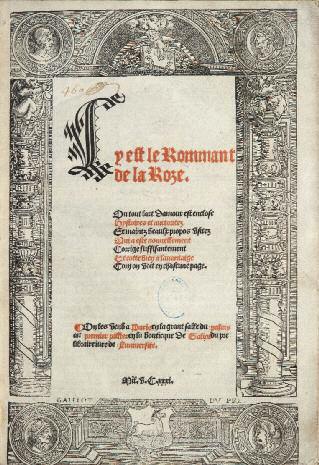 Cy est le Rommant
de la Roze.
Ou tout lart Damour est enclose
Hystoires et auctoritez
Et maintz beaulx propos vsitez
Qui a este nouuellement
Corrige suffisantement
Et cotte bien a lauantaige
Com on voit en chascune page.
On les vend a Paris en la grant salle du palais
au premier pillier en la boutique De Galiot du pre
Libraire iure de Luniuersite.
Mil. v. C. xxxi.
GALLIOT DV PRE